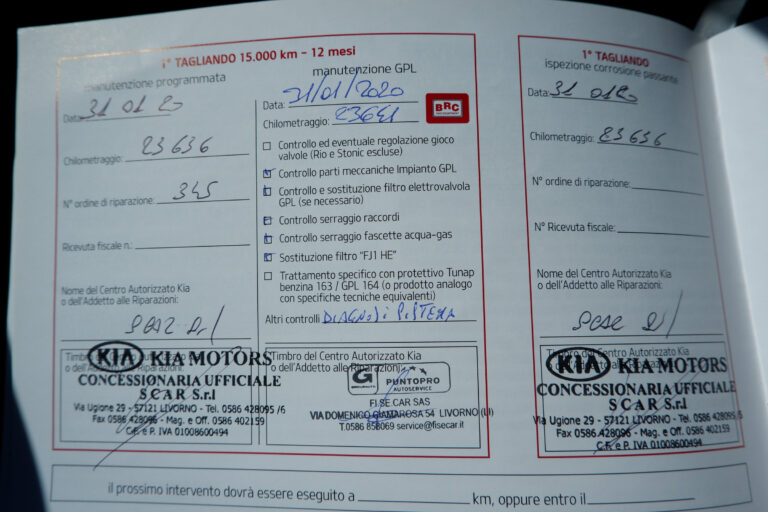 1° TAGLIANDO 15.000 km - 12 mesi
manutenzione programmata
Data: 31 01 20
Chilometraggio: 23636
N° ordine di riparazione: 345
Ricevuta fiscale n.:
Nome del Centro Autorizzato Kia
o dell'Addetto alle Riparazioni:
Timbro del Centro Autorizzato Kia
o dell'Addetto alle Riparazioni:
KIA KIA MOTORS
CONCESSIONARIA UFFICIALE
SCAR S.r.l
Via Ugione 29 - 57121 LIVORNO - Tel. 0586 428095 /6
Fax 0586 428096 - Mag. e Off. 0586 402159
C.F. e P. IVA 01008600494
manutenzione GPL
Data: 31/01/2020
Chilometraggio: 23641
BRC
Controllo ed eventuale regolazione gioco
valvole (Rio e Stonic escluse)
Controllo parti meccaniche Impianto GPL
Controllo e sostituzione filtro elettrovalvola
GPL (se necessario)
Controllo serraggio raccordi
Controllo serraggio fascette acqua-gas
Sostituzione filtro "FJ1 HE"
Trattamento specifico con protettivo Tunap
benzina 163 / GPL 164 (o prodotto analogo
con specifiche tecniche equivalenti)
Altri controlli DIAGNOSI SISTEMA
Timbro del Centro Autorizzato Kia
o dell'Addetto alle Riparazioni:
G PUNTOPRO
AUTOSERVICE
FI.SE CAR SAS
VIA DOMENICO CIAMAROSA 54 LIVORNO (LI)
T.0586 858069 service@fisecar.it
1° TAGLIANDO
ispezione corrosione passante
Data: 31 01 20
Chilometraggio: 23636
N° ordine di riparazione:
N° Ricevuta fiscale:
Nome del Centro Autorizzato Kia
o dell'Addetto alle Riparazioni:
Timbro del Centro Autorizzato Kia
o dell'Addetto alle Riparazioni:
KIA KIA MOTORS
CONCESSIONARIA UFFICIALE
SCAR S.r.l
Via Ugione 29 - 57121 LIVORNO - Tel. 0586 428095 /6
Fax 0586 428096 - Mag. e Off. 0586 402159
C.F. e P. IVA 01008600494
il prossimo intervento dovrà essere eseguito a km, oppure entro il